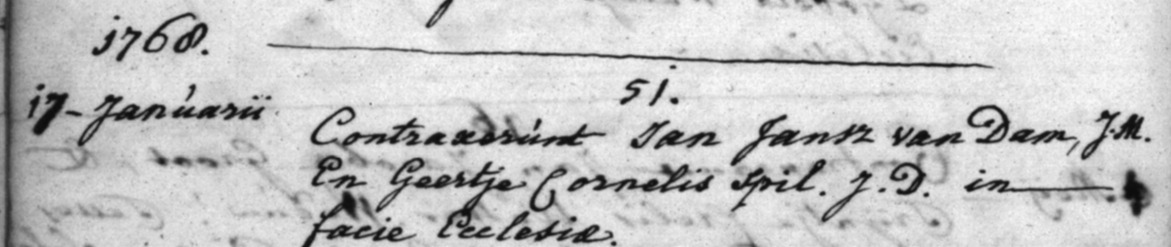 1768.
51.
17 - Januarii
Contraxerunt Jan Jansz van Dam, J.M.
En Geertje Cornelis Spil. J.D. in
facie Ecclesiæ.